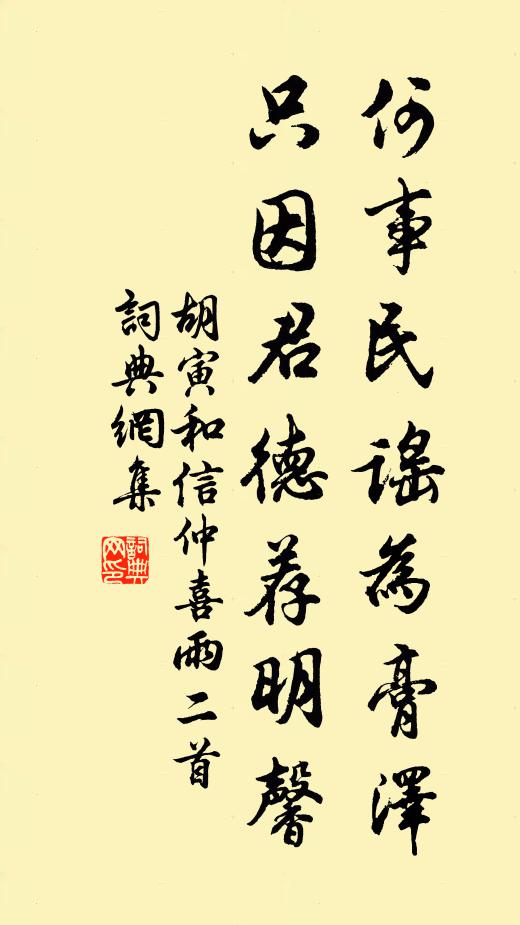 何事民謠為膏澤
只因君德荐明馨
胡寅和信仲喜雨二首
詞典網集
詞典網印